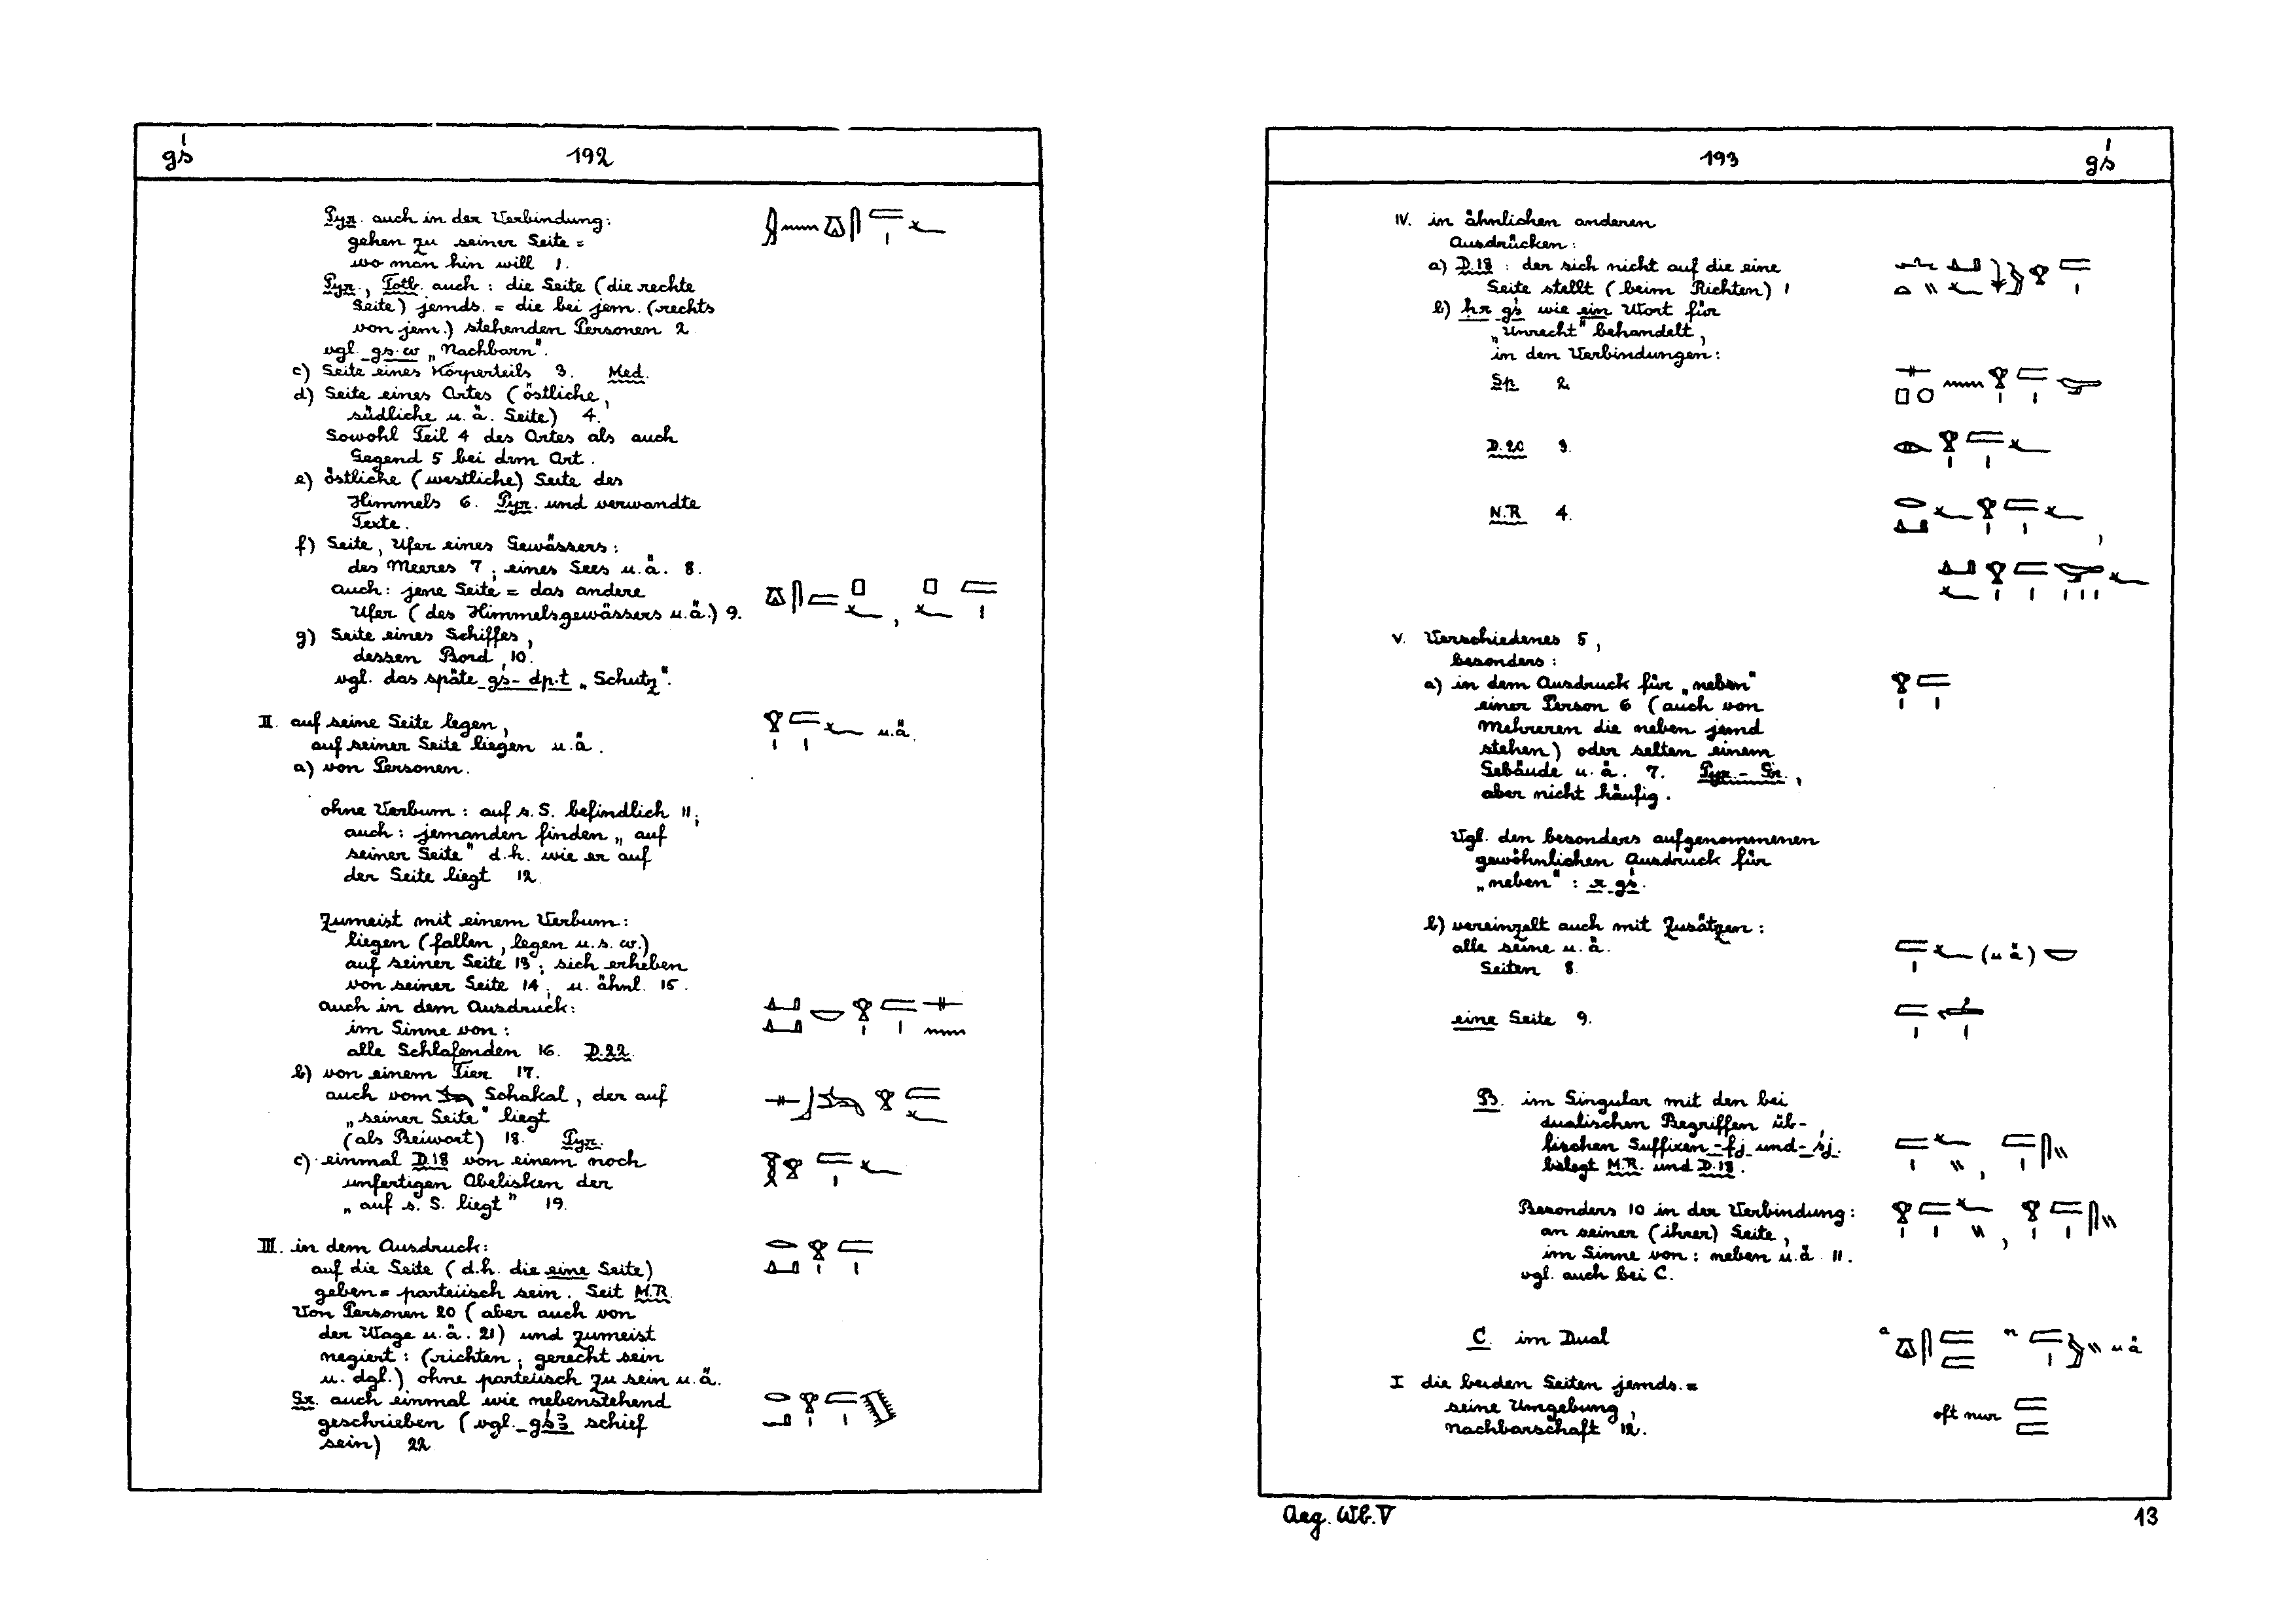 gś
192
Pyr. auch in der Verbindung:
gehen zu seiner Seite =
wo man hin will 1.
Pyr., Totb. auch: die Seite (die rechte
Seite) jemds. = die bei jem. (rechts
von jem.) stehenden Personen 2
vgl. gs.w „Nachbarn".
c) Seite eines Körperteils 3. Med.
d) Seite eines Ortes (östliche,
südliche u. ä. Seite) 4.
Sowohl Teil 4 des Ortes als auch
Gegend 5 bei dem Ort.
e) östliche (westliche) Seite des
Himmels 6. Pyr. und verwandte
Texte.
f) Seite, Ufer eines Gewässers:
des Meeres 7; eines Sees u. ä. 8.
auch: jene Seite = das andere
Ufer (des Himmelsgewässers u. ä.) 9.
g) Seite eines Schiffes,
dessen Bord 10.
vgl. das späte gs-dp.t „Schutz".
II. auf seine Seite legen,
auf seiner Seite liegen u. ä.
u. ä.
a) von Personen.
ohne Verbum: auf s. S. befindlich 11;
auch: jemanden finden „auf
seiner Seite" d.h. wie er auf
der Seite liegt 12.
Zumeist mit einem Verbum:
liegen (fallen, legen u. s. w.)
auf seiner Seite 13; sich erheben
von seiner Seite 14; u. ähnl. 15.
auch in dem Ausdruck:
im Sinne von:
alle Schlafenden 16. D.22.
b) von einem Tier 17.
auch vom 𓃢 Schakal, der auf
„seiner Seite" liegt
(als Beiwort) 18. Pyr.
c) einmal D.18 von einem noch
unfertigen Obelisken der
„auf s. S. liegt" 19.
III. in dem Ausdruck:
auf die Seite (d.h. die eine Seite)
geben = parteiisch sein. Seit M.R.
Von Personen 20 (aber auch von
der Wage u. ä. 21) und zumeist
negiert: (richten; gerecht sein
u. dgl.) ohne parteiisch zu sein u. ä.
Gr. auch einmal wie nebenstehend
geschrieben (vgl. gśꜣ schief
sein) 22.
193
gś
IV. in ähnlichen anderen
Ausdrücken:
a) D.18: der sich nicht auf die eine
Seite stellt (beim Richten) 1
b) ḥr gś wie ein Wort für
„Unrecht" behandelt,
in den Verbindungen:
Sp 2.
D.20 3.
N.R 4.
V. Verschiedenes 5,
besonders:
a) in dem Ausdruck für „neben"
einer Person 6 (auch von
Mehreren die neben jemd
stehen) oder selten einem
Gebäude u. ä. 7. Pyr.-Gr.,
aber nicht häufig.
Vgl. den besonders aufgenommenen
gewöhnlichen Ausdruck für
„neben": r gś.
b) vereinzelt auch mit Zusätzen:
alle seine u. ä.
(u ä)
Seiten 8.
eine Seite 9.
B. im Singular mit den bei
dualischen Begriffen üb-
lischen Suffixen -fj und -śj.
belegt M.R. und D.18.
Besonders 10 in der Verbindung:
an seiner (ihrer) Seite,
im Sinne von: neben u. ä. 11.
vgl. auch bei C.
C. im Dual
a n u ä
I die beiden Seiten jemds. =
seine Umgebung,
oft nur
Nachbarschaft 12.
Aeg. Wb. V
13